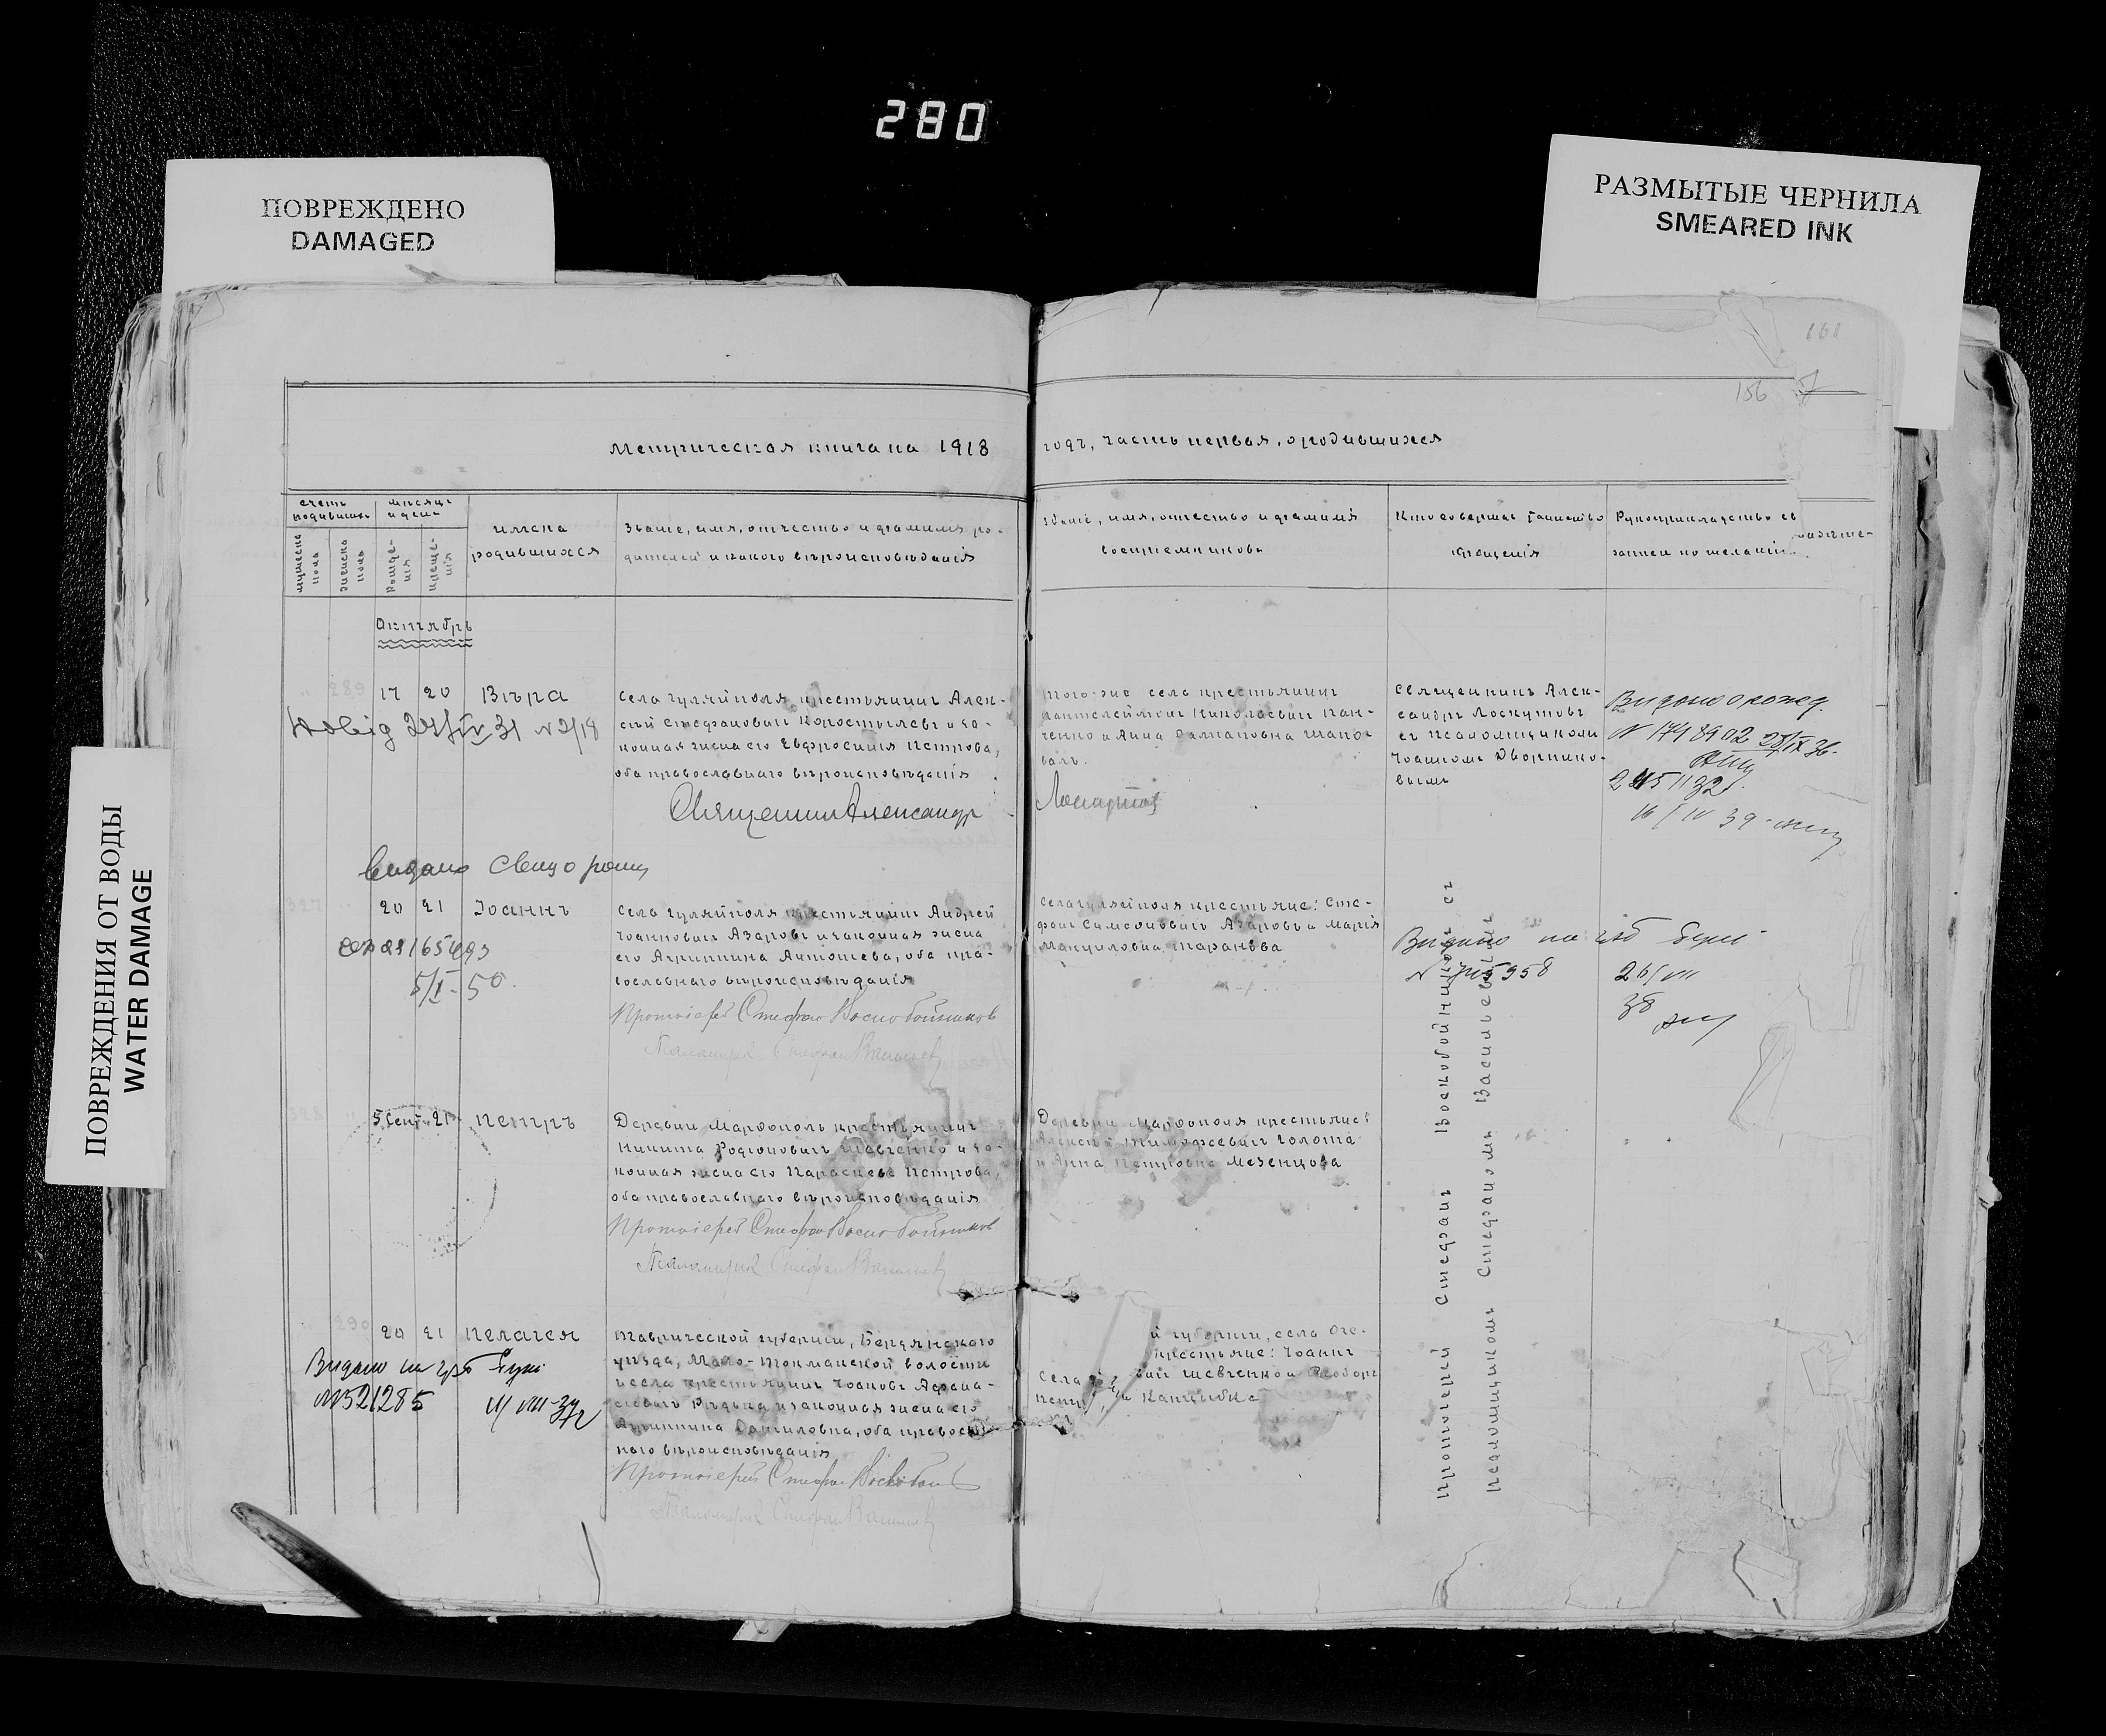 280
ПОВРЕЖДЕНО
DAMAGED
РАЗМЫТЫЕ ЧЕРНИЛА
SMEARED INK
ПОВРЕЖДЕНИЯ ОТ ВОДЫ
WATER DAMAGE
156
Метрическая книга на 1918
годъ, часть первая, о родившихся
счетъ родившихся
мужеска пола
женска пола
мѣсяцъ и день
рожденія
крещенія
имена
родившихся
Званіе, имя, отчество и фамилія ро-
дителей и какого вѣроисповѣданія
Званіе, имя, отчество и фамилія
воспріемниковъ
Кто совершал таинство
крещенія
Рукоприкладство св
записи по желанію
Октябрь
289 17 20 Вѣра
Села Гуляйполя крестьянинъ Алек-
сѣй Стефановичъ Коростылевъ и за-
конная жена его Евфросинія Петрова,
оба православнаго вѣроисповѣданія
Священник Александр
того-же села крестьянинъ
Пантелеймонъ Николаевич Пан-
ченко и Анна
валъ.
Священникъ Алек-
сандръ Лоскутовъ
съ псаломщикомъ
Іоанномъ Дворнико-
вымъ
N 1748902
видано свид о рожд
327 20 21 Іоаннъ
5/I-50
Села Гуляйполя крестьянинъ Андрей
Іоанновичъ Азаровъ и законная жена
его Агриппина Антонова, оба пра-
вославнаго вѣроисповѣданія
Протоіерей Стефан Воскобойников
Псаломщик Стефан Васильев
Села Гуляйполя крестьяне: Сте-
фанъ Симеоновичъ Азаровъ и Марія
Мануиловна Таранова
Видано
26/VII
38
328 5 Сент. 21 Петръ
Деревни Марфополь крестьянинъ
Никита Родіоновичъ Шевченко и за-
конная жена его Параскева Петрова,
оба православнаго вѣроисповѣданія
Протоіерей Стефан Воскобойников
Псаломщик Стефан Васильев
Деревни Марфополя крестьяне:
Алексѣй Тимофеевич Голота
и Анна Петровна Мезенцова
290 20 21 Пелагея
Видано на
N 521285
Таврической губерніи, Бердянскаго
уѣзда, Мало-Токмакской волости
и села крестьянинъ Іоаннъ Афана-
сьевичъ и законная жена его
Агриппина Даниловна, оба правосл
наго вѣроисповѣданія
Протоіерей Стефан Воскобой
Псаломщик Стефан Васильев
й губерніи, села
крестьяне: Іоаннъ
Села вичъ Шевченко и Ѳеодора
Протоіерей Стефанъ Воскобойниковъ съ
псаломщикомъ Стефаномъ Васильевымъ